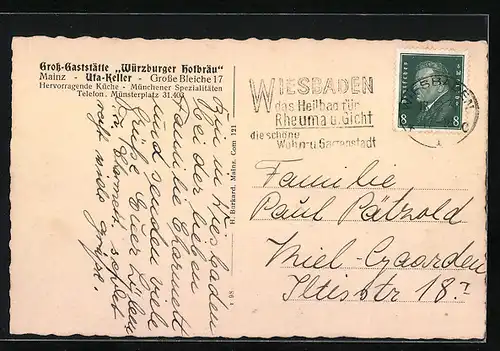 Groß-Gaststätte „Würzburger Hofbräu"
Mainz - Uta-Keller - Große Bleiche 17
Hervorragende Küche - Münchener Spezialitäten
Telefon. Münsterplatz 31.404
WIESBADEN
das Heilbad für
Rheuma u. Gicht
die schöne
Wohn- u. Gartenstadt
WIESBADEN
Deutsches Reich
8 8
H. Burkard, Mainz. Com 121
98
Bin in Wiesbaden
bei der lieben
Familie
und senden viele
Grüße Euer
Familie
Paul Pätzold
Kiel-Gaarden
Iltisstr 18